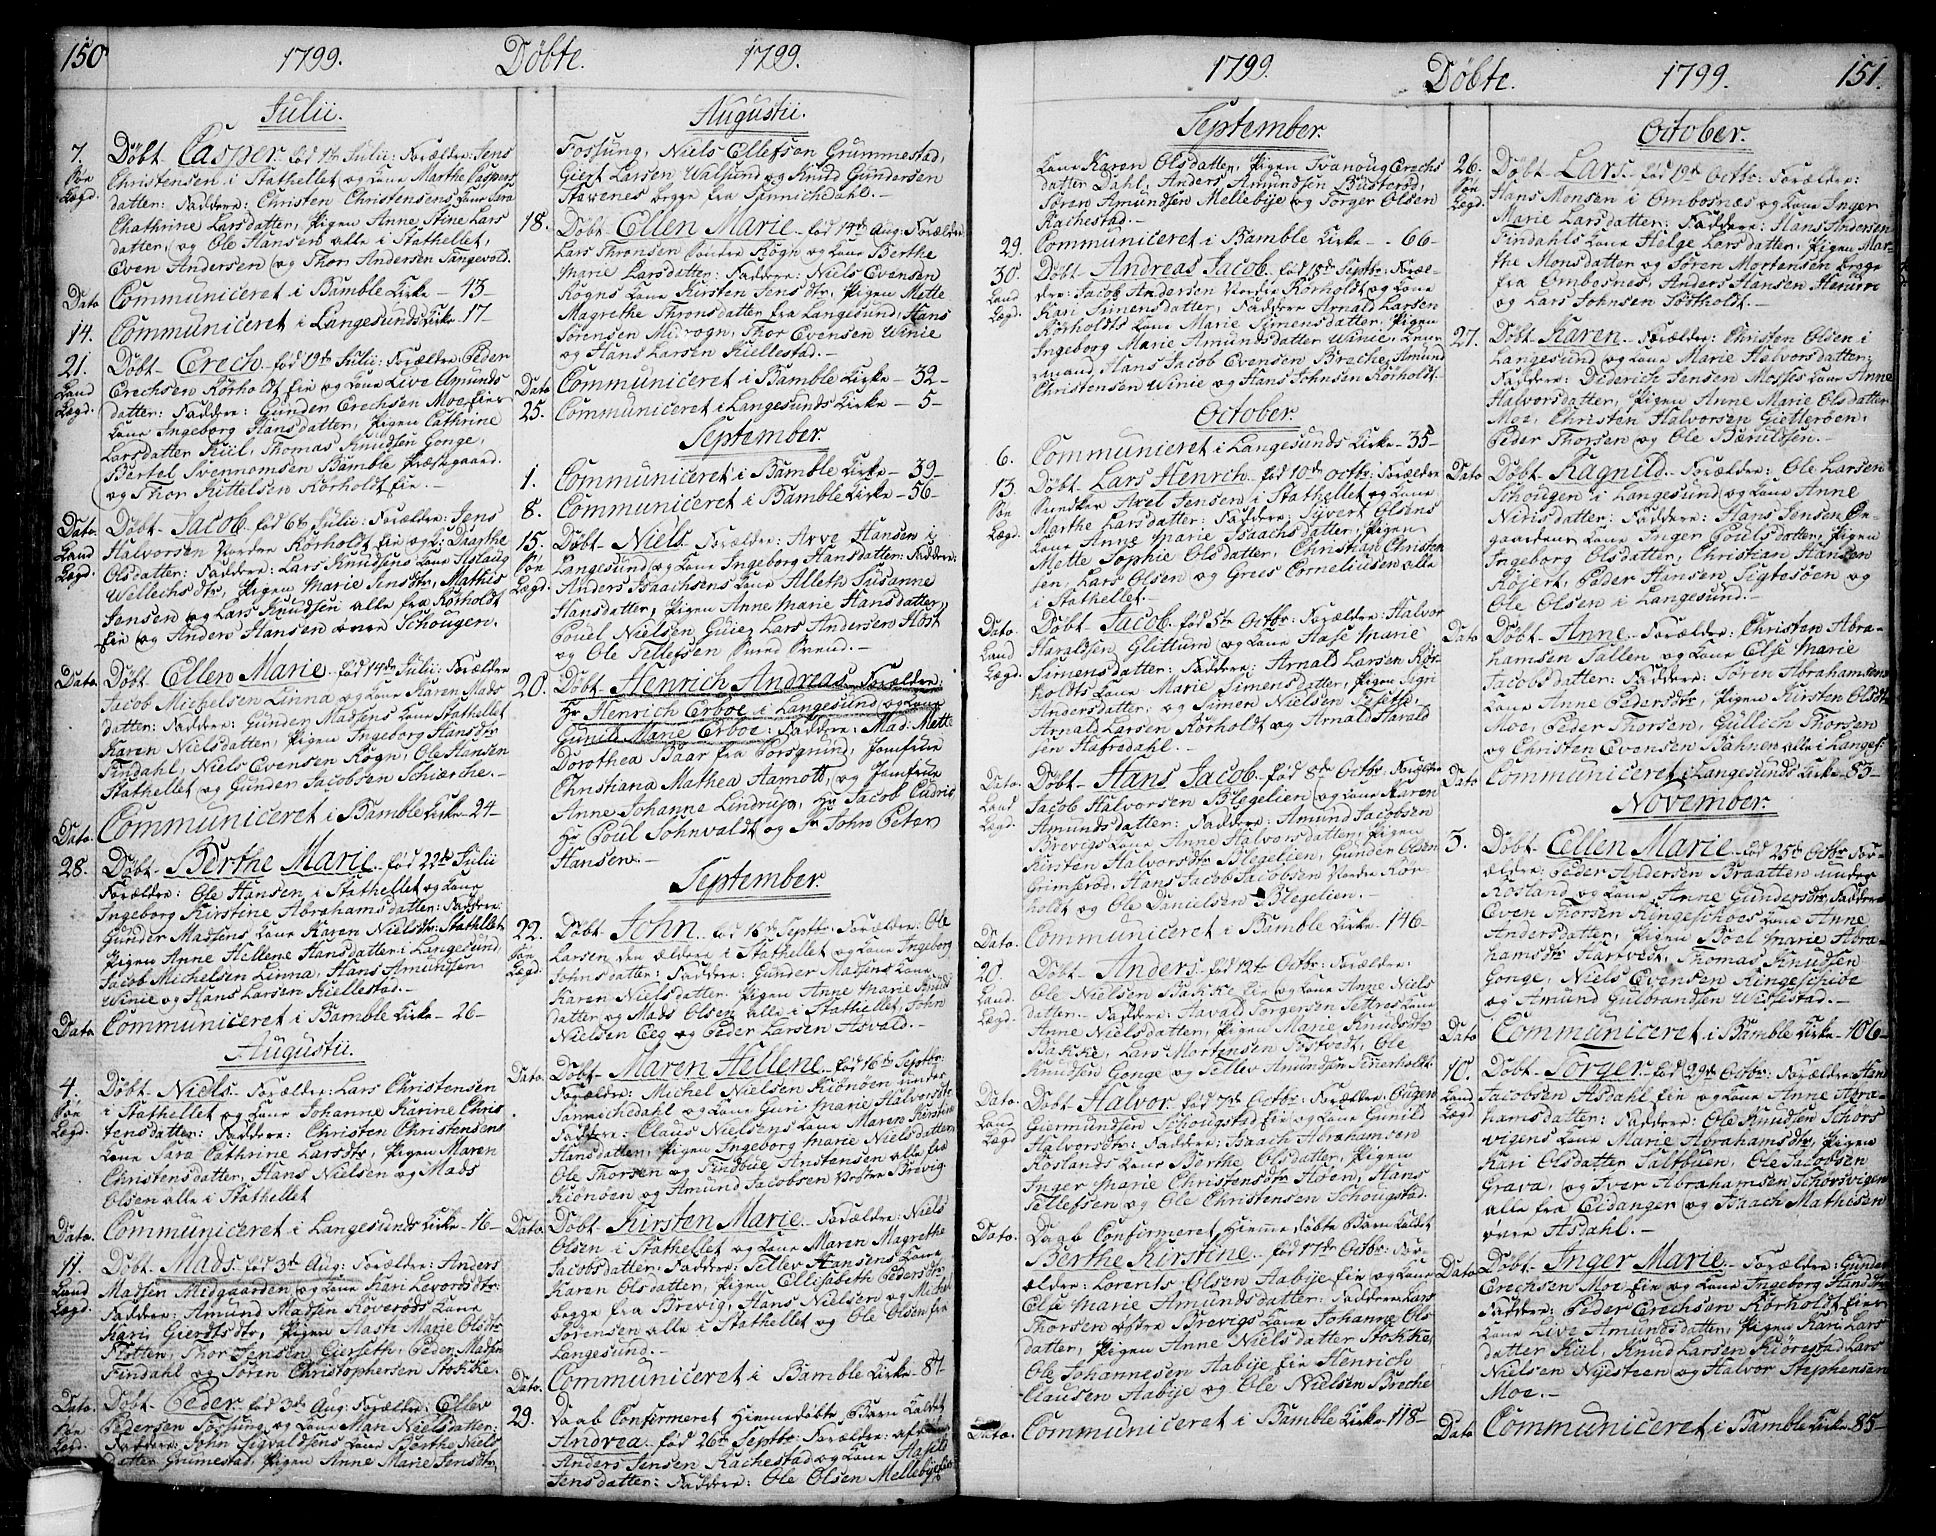 150 1799. Döbte. 1799.
Julii.
7. Döbt Casper fød 1de Julii: Forældre: Jens
Søe Christensen i Stathellet og Kone Marthe Caspers
Lægd. datter: Faddere: Christen Christensens Kone Sara
Chathrine Larsdatter, Pigen Anne Stine Lars
datter, og Ole Hansen alle i Stathellet,
Even Andersen og Thor Andersen Tangevald.
Dato Communiceret i Bamble Kirke - 13 -
14. Communiceret i Langesunds Kirke 17 -
21. Döbt Erech fød 19de Julii: Forældre: Peder
Land Erechsen Rörholt fie og Kone Live Amunds
Lægd. datter: Faddere: Gunder Erechsen Moe fier
Kone Ingeborg Hansdatter, Pigen Cathrine
Larsdatter Kiil, Thomas Knudsen Gonge,
Bertel Svennomsen Bamble Præstegaard.
og Thor Kittelsen Rörholdt fie. -
Dato Döbt Jacob fød 6te Julii: Forældre: Jens
Land Halvorsen Nordre Rörholt fie og K: Daarthe
Lægd. Olsdatter: Faddere: Lars Knudsens Kone Aslaug
Willeichsdtr, Pigen Marie Jensdtr, Mathis
Jensen og Lars Knudsen alle fra Rörholdt
fie og Anders Hansen övre Schougen.
Dato Döbt Ellen Marie fød 14de Julii: Forældre
Jacob Michelsen Linna og Kone Karen Mads
datter: Faddere: Gunder Madsens Kone Stathellet
Karen Nielsdatter, Pigen Ingeborg Hansdtr
Findahl, Niels Evensen Rogn, Ole Hansen
Stathellet og Gunder Jacobsen Schiærche.
Dato. Communiceret i Bamble Kirke - 24 -
28. Döbt Berthe Marie fød 22de Julii
Forældre: Ole Hansen i Stathellet og Kone
Ingeborg Kirstine Abrahamsdatter: Faddere:
Gunder Madsens Kone Karen Nielsdtr: Stathellet
Pigen Anne Hellene Hansdatter i Langesund,
Jacob Michelsen Linna, Hans Amundsen
Winie og Hans Larsen Kiellestad. -
Dato Communiceret i Bamble Kirke - 26 -
Augustii.
4. Döbt Niels Forældre: Lars Christensen
Søe i Stathellet og Kone Johanne Karine Chris
Lægd. tensdatter: Faddere: Christen Christensens
Kone Sara Cathrine Larsdtr, Pigen Maren
Christensdatter, Hans Nielsen og Mads
Olsen alle i Stathellet
Dato. Communiceret i Langesunds Kirke - 16 -
11. Döbt Mads fød 3de Aug: Forældre: Anders
Land Madsen Midgaarden og Kone Kari Levordsdtr:
Lægd. Faddere: Amund Madsen Roverods Kone
Kari Gierdtsdtr, Pigen Aaste Marie Olsdtr
Fistten, Thor Jensen Gierseth, Peder Madsen
Findahl og Søren Christophersen Stokke.
Dato. Döbt Peder fød 3de Aug: Forældre: Ellev
Søe Pedersen Fossung og Kone Mari Nielsdatter:
Lægd. Faddere: John Sigvaldsens Kone Berthe Niels
datter Grumestad, Pigen Anne Marie Jensdtr
Augustii.
Fossung, Niels Ellefsen Grummestad,
Giert Larsen Walsund og Knud Gundersen
Stavenes begge fra Sannichedahl.
18. Döbt Ellen Marie fød 14de Aug: Forældre
Lars Thronsen Söndre Rogn og Kone Berthe
Marie Larsdatter: Faddere: Niels Evensen
Rogns Kone Kirsten Jensdtr, Pigen Mette
Magrethe Thronsdatter fra Langesund, Hans
Sörensen Midrogn, Thor Evensen Winie
og Hans Larsen Kiellestad. -
Dato Communiceret i Bamble Kirke - 32 -
25. Communiceret i Langesunds Kirke - 5 -
September.
1. Communiceret i Bamble Kirke - 39 -
8. Communiceret i Bamble Kirke - 56 -
15. Döbt Niels Forældre: Arve Hansen i
Søe Langesund og Kone Ingeborg Hansdatter: Faddere:
Lægd. Anders Isaachsens Kone Alleth Susanne
Hansdatter, Pigen Anne Marie Hansdatter,
Poul Nielsen Guie, Lars Andersen Höst
og Ole Tellefsen Svend
20. Döbt Henrich Andreas Forældre:
Hr Henrich Erboe i Langesund og Kone
Gunild Marie Erboe: Faddere: Mad: Mette
Dorothea Baar fra Porsgrund, Jomfrue
Christiana Mathea Aamott, og Jomfrue
Anne Johanne Lindrup, Hr Jacob Cudrio
Hr Poul Johnvaldt og Sr John Peter
Hansen. -
September.
22. Döbt John fød 15de Septbr: Forældre: Ole
Søe Larsen den ældere i Stathellet og Kone Ingeborg
Lægd. Johnsdatter: Faddere: Gunder Madsens Kone
Karen Nielsdatter, Pigen Anne Marie Knuds
datter og Mads Olsen alle i Stathellet, John
Nielsen Eeg og Peder Larsen Asvald. -
Dato Döbt Maren Hellene fød 16de Septbr:
Forældre: Michel Nielsen Kiönöen under
Sannichedahl og Kone Guri Marie Halvorsdtr
Faddere: Claus Nielsens Kone Maren Kirstine
Hansdatter, Pigen Ingeborg Marie Nielsdatter,
Ole Thorsen og Findbue Anstensen alle fra
Kiönöen og Amund Jacobsen Vestre Brevig
Dato. Döbt Kirsten Marie Forældre: Niels
Olsen i Stathellet og Kone Maren Magrethe
Jacobsdatter: Faddere: Tellev Hansens Kone
Karen Olsdatter, Pigen Ellisabeth Pedersdtr
begge fra Brevig, Hans Nielsen og Michel
Sörensen alle i Stathellet og Ole Olsen fra
Langesund. -
Dato. Communiceret i Bamble Kirke - 84 -
29. Daab Confirmeret Hiemmedöbte Barn Kaldet
Andrea fød 26de Septbr: Forældre:
Anders Jensen Rachestad og Kone Aase
Jensdatter: Faddere: Ole Olsen Mellebye
1799. Döbte. 1799. 151.
September.
Kone Karen Olsdatter, Pigen Tvanoug Erechs
datter Dahl, Anders Amundsen Busteröd,
Sören Amundsen Mellebye og Torger Olsen
Rachestad. -
29. Communiceret i Bamble Kirke - - 66 -
30. Döbt Andreas Jacob fød 15de Septbr: Foræl-
Land dre: Jacob Andersen Nordre Rörholdt og Kone
Lægd. Kari Simensdatter, Faddere Arnold Larsen
Rörholdts Kone Marie Simensdatter, Pigen
Ingeborg Marie Amundsdatter Winie,
mand, Hans Jacob Evensen Breche, Amund
Christensen Winie og Hans Johnsen Rörholdt.
October.
6. Communiceret i Langesunds Kirke - 35 -
13. Döbt Lars Henrich fød 10de Octbr: Forældre
Søe Axel Jensen i Stathellet og Kone
Lægd. Marthe Larsdatter: Faddere: Syvert Olsens
Kone Anne Marie Isaachsdatter, Pigen
Mette Sophie Olsdatter, Christian Christen
sen, Lars Olsen og Grues Corneliussen alle
i Stathellet. -
Dato. Döbt Jacob fød 5te Octbr: Forældre: Halvor
Land Haraldsen Glittum og Kone Aase Marie
Lægd. Simensdatter: Faddere: Arnold Larsen Rör
holdts Kone Marie Simensdatter, Pigen Segri
Andersdatter og Simen Nielsen Teisthe,
Arnold Larsen Rörholdt og Arnold Harald
sen Stafredahl. -
Dato. Döbt Hans Jacob fød 8de Octbr: Forældre
Land Jacob Halvorsen Blegelien og Kone Karen
Lægd. Amundsdatter: Faddere: Amund Jacobsen
Brevigs Kone Anne Halvorsdatter, Pigen
Kirsten Halvorsdtr Blegelien, Gunder Olsen
Grimseröd, Hans Jacob Jacobsen Nordre Rör
holdt og Ole Danielsen Blegelien.
Dato. Communiceret i Bamble Kirke - 146 -
20. Döbt Anders fød 12te Octbr: Forældre:
Land. Ole Nielsen Bakke fie og Kone Anne Niels
Lægd. datter. Faddere: Havald Torgersen Settres Kone
Anne Nielsdatter, Pigen Marie Knudsdtr
Bakke, Lars Mortensen Tostvedt, Ole
Knudsen Gonge og Tellev Amundsen Fehrerholdt
Dato. Döbt Halvor fød 7de Octbr: Forældre: Ougen
Land Giermundsen Schougstad fie og Kone Gunild
Lægd Halvorsdtr: Faddere: Isaach Abrahamsen
Rostands Kone Berthe Olsdatter, Pigen
Inger Marie Christensdtr Hoen, Hans
Tellefsen og Ole Christensen Schougstad.
Dato. Daab Confirmeret Hiemmedöbte Barn Kaldet
Berthe Kirstine fød 17de Octbr: For-
ældre: Lorents Olsen Aabye fie og Kone
Else Marie Amundsdatter: Faddere: Lars
Thorsen östre Brevigs Kone Johanne Ols
datter, Pigen Anne Nielsdatter Stokke,
Ole Johannesen Aabye fie Henrich
Clausen Aabye og Ole Nielsen Breche
Dato. Communiceret i Bamble Kirke - 118 -
October.
26. Döbt Lars fød 19de Octbr: Forældre:
Søe Hans Monsen i Ombosnæs og Kone Inger
Lægd. Marie Larsdatter: Faddere: Hans Andersen
Findahls Kone Helge Larsdatter, Pigen Mar-
the Monsdatter og Sören Mortensen begge
fra Ombosnes, Anders Hansen Herum
og Lars Johnsen Tostholt. -
27. Döbt Karen Forældre: Christen Olsen i
Langesund og Kone Marie Halvorsdatter;
Faddere: Diderich Jensen Mosses Kone Anne
Halvorsdatter, Pigen Anne Marie Olsdatter
Moe, Christen Halvorsen Gietteröen,
Peder Thorsen og Ole Bænildsen.
Dato Döbt Ragnild Forældre: Ole Larsen
Schougen i Langesund og Kone Anne
Nirisdatter: Faddere: Hans Jensen Ön-
gaardens Kone Inger Poulsdatter, Pigen
Ingeborg Olsdatter, Christian Hansen
Röjert, Peder Hansen Sigtesöen og
Ole Olsen i Langesund. -
Dato Döbt Anne Forældre: Christen Abra-
hamsen Tallen og Kone Else Marie
Jacobsdatter: Faddere: Sören Abrahamsens
Kone Anne Pedersdtr, Pigen Kirsten Olsdtr
Moe, Peder Thorsen, Gullich Thorsen
og Christen Evensen Bahnen alle i Langes:
Dato Communiceret i Langesunds Kirke - 83 -
November.
3. Döbt Ellen Marie fød 25de Octbr: For-
ældre: Peder Andersen Braatten under
Rostand og Kone Anne Gundersdtr, Faddere
Even Thorsen Ringeschoes Kone Anne
Andersdatter, Pigen Boel Marie Abra-
hamsdtr Hartvedt, Thomas Knudsen
Gonge, Niels Evensen Ringeschoe
og Amund Gulbrandsen Wissestad. -
Dato Communiceret i Bamble Kirke - 106 -
10. Döbt Torger fød 29de Octbr: Forældre: Hans
Land Jacobsen Asdahl fie og Kone Anne Abra-
Lægd hamsdatter: Faddere: Ole Knudsen Schors
vigens Kone Marie Abrahamsdtr, Pigen
Kari Olsdatter Saltbuen, Ole Jacobsen
Grava, og Iver Abrahamsen Schorsvigen
alle fra Eidanger og Isaach Mathesen
övre Asdahl. -
Dato Döbt Inger Marie Forældre: Gunder
Erechsen Moe fie og Kone Ingeborg Hansdtr
Faddere: Peder Erechsen Rörholdt fier
Kone Live Amundsdatter, Pigen Kari Lars
datter Kiil, Knud Larsen Kiörestad, Lars
Nielsen Nysteen og Halvor Stephensen
Moe. -
Dato Communiceret i Bamble Kirke - 85 -